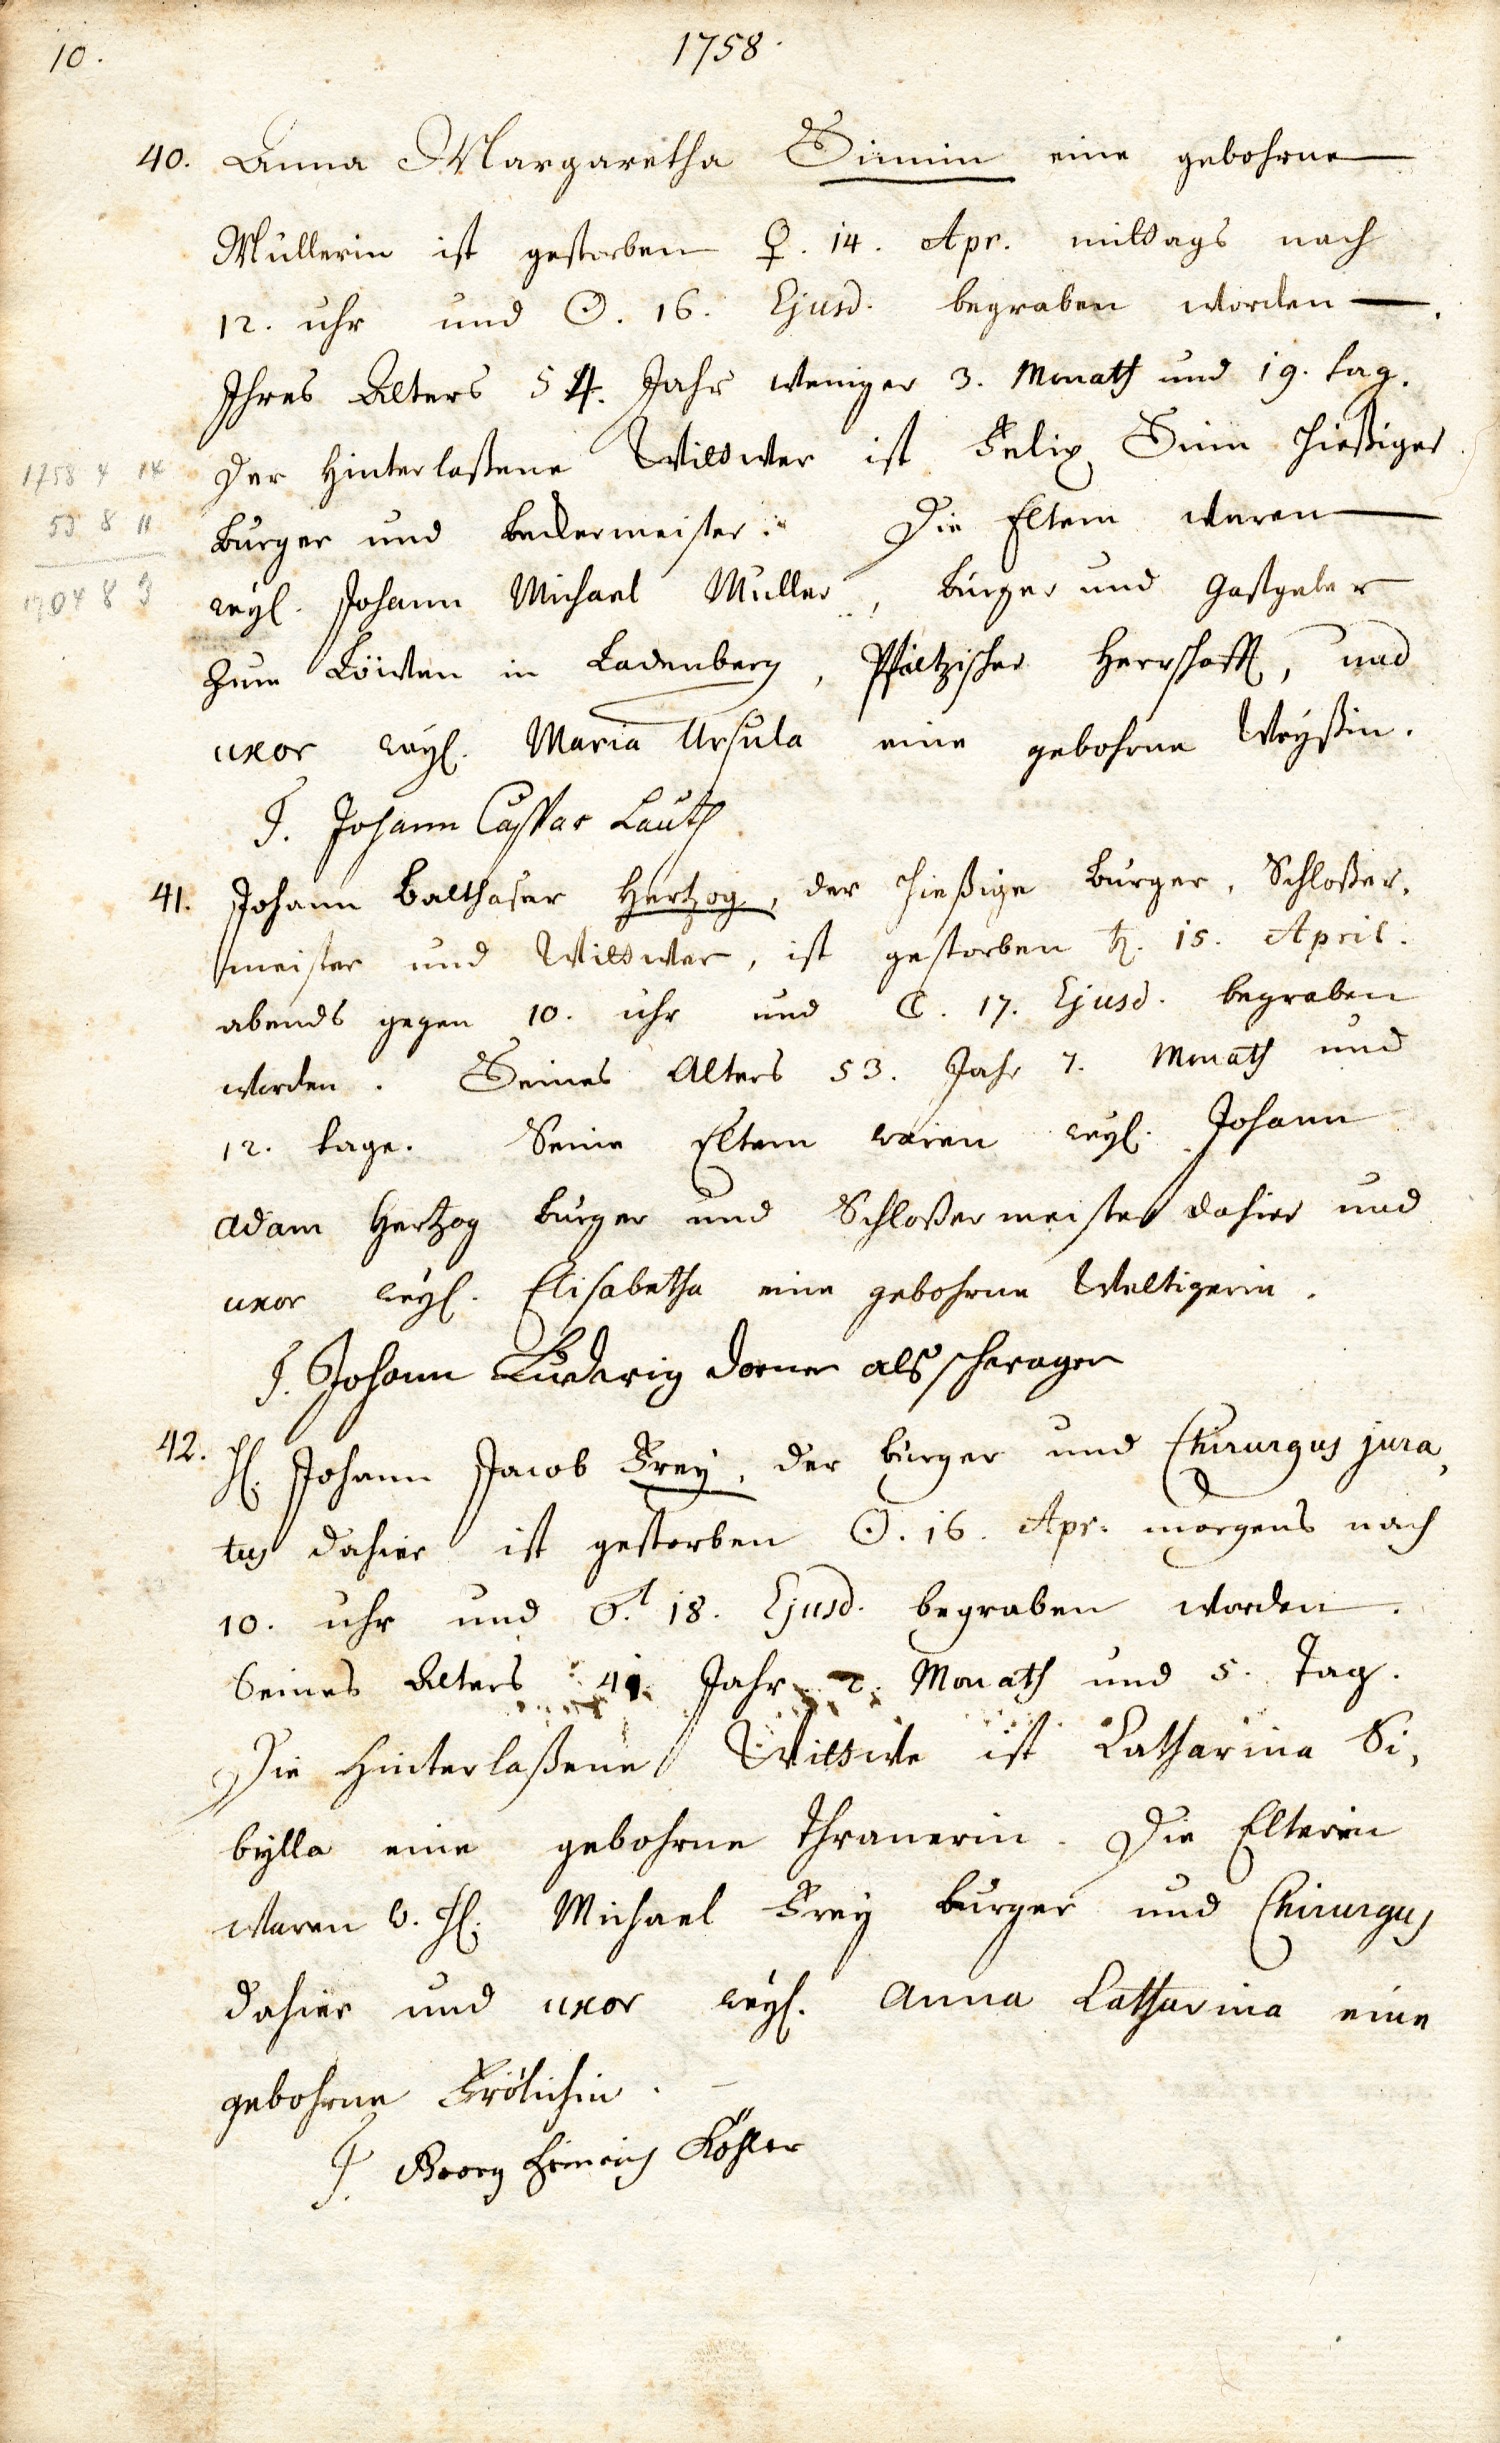 10.
1758.
40. Anna Margaretha Simmin eine gebohrne
Müllerin ist gestorben ♀. 14. Apr. mittags nach
12. uhr und ☉. 16. Ejusd. begraben worden —.
Ihres Alters 54. Jahr weniger 3. Monath und 19. tag.
Der hinterlaßene Wittwer ist Felix Simm hießiger
Burger und beckermeister. Die Eltern waren
weyl. Johann Michael Müller, burger und Gastgeber
zum Löwen in Ladenberg, Pfältzischer Herrschafft, und
uxor weyl. Maria Ursula eine gebohrne Weyßin.
T. Johann Caspar Lauth
1758 4 14
53 8 11
1704 8 3
41. Johann Balthasar Hertzog, der hießige burger, Schloßer,
meister und Wittwer, ist gestorben ♄. 15. April.
abends gegen 10. uhr und ☾. 17. Ejusd. begraben
worden. Seines Alters 53. Jahr 7. Monath und
12. tage. Seine Eltern waren weyl. Johann
Adam Hertzog burger und Schloßermeister dahier und
uxor weyl. Elisabetha eine gebohrne Weltigerin.
T. Johann Ludwig Dorner als schwager
42. H. Johann Jacob Frey, der burger und Chirurgus jura,
tus dahier ist gestorben ☉. 16. Apr. morgens nach
10. uhr und ♂. 18. Ejusd. begraben worden.
Seines Alters 41. Jahr 2. Monath und 5. Tag.
Die hinterlaßene Wittwe ist Catharina Si,
bylla eine gebohrne Thranerin. Die Elteren
waren w. H. Michael Frey burger und Chirurgus
dahier und uxor weyl. Anna Catharina eine
gebohrne Frölichin. —
T. Georg Heinrich Köhler